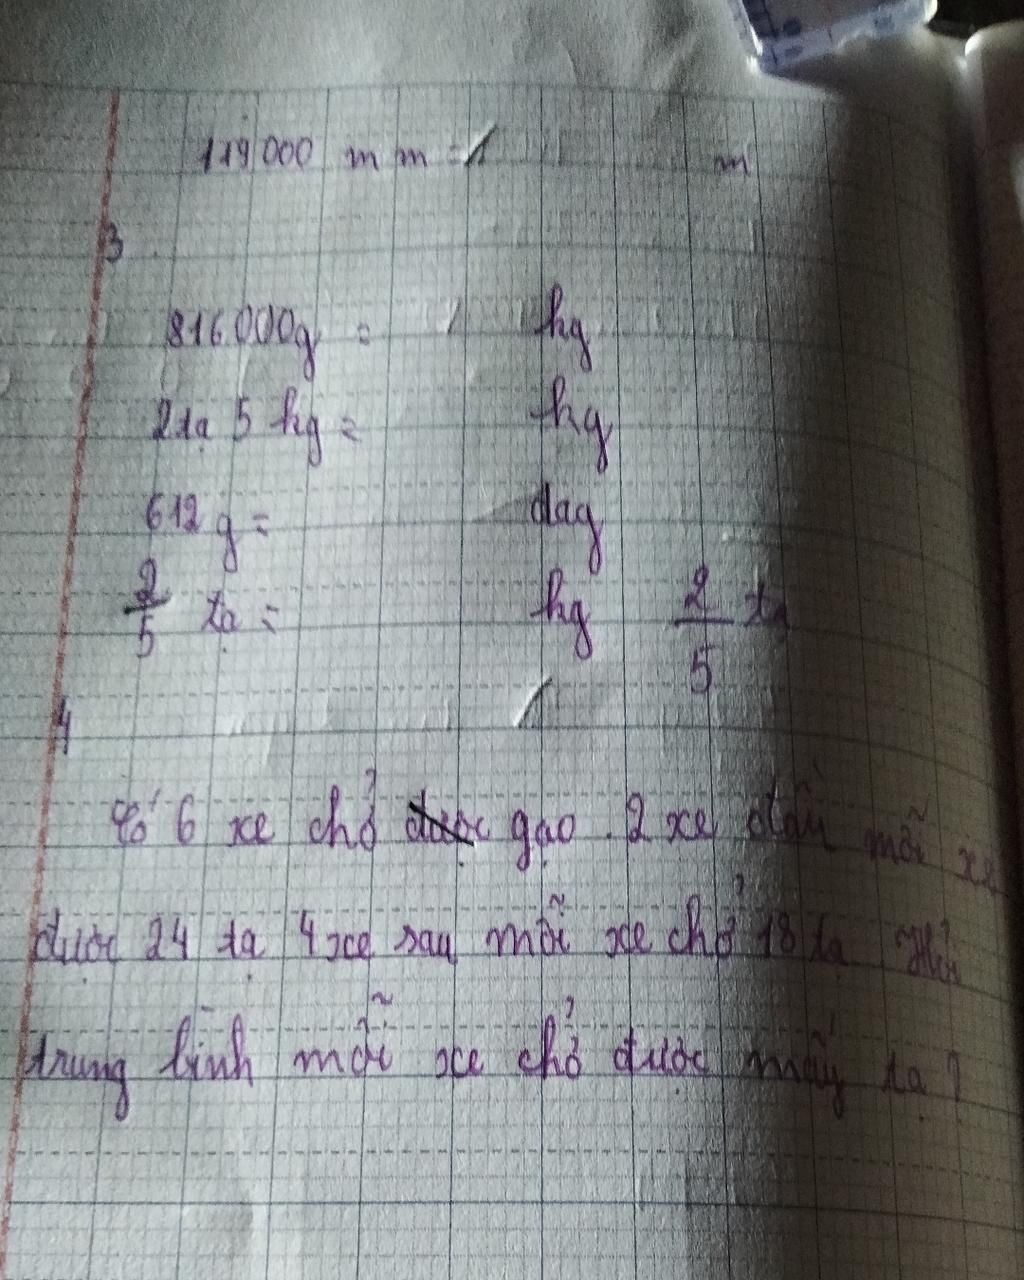 119000 mm = m
3
816000g = kg
2 tạ 5 kg = kg
612 g = dag
2/5 tạ = kg 2/5 tạ
4
Có 6 xe chở được gạo. 2 xe đầu mỗi xe
được 24 tạ 4 xe sau mỗi xe chở 18 tạ Hỏi
trung bình mỗi xe chở được mấy tạ ?